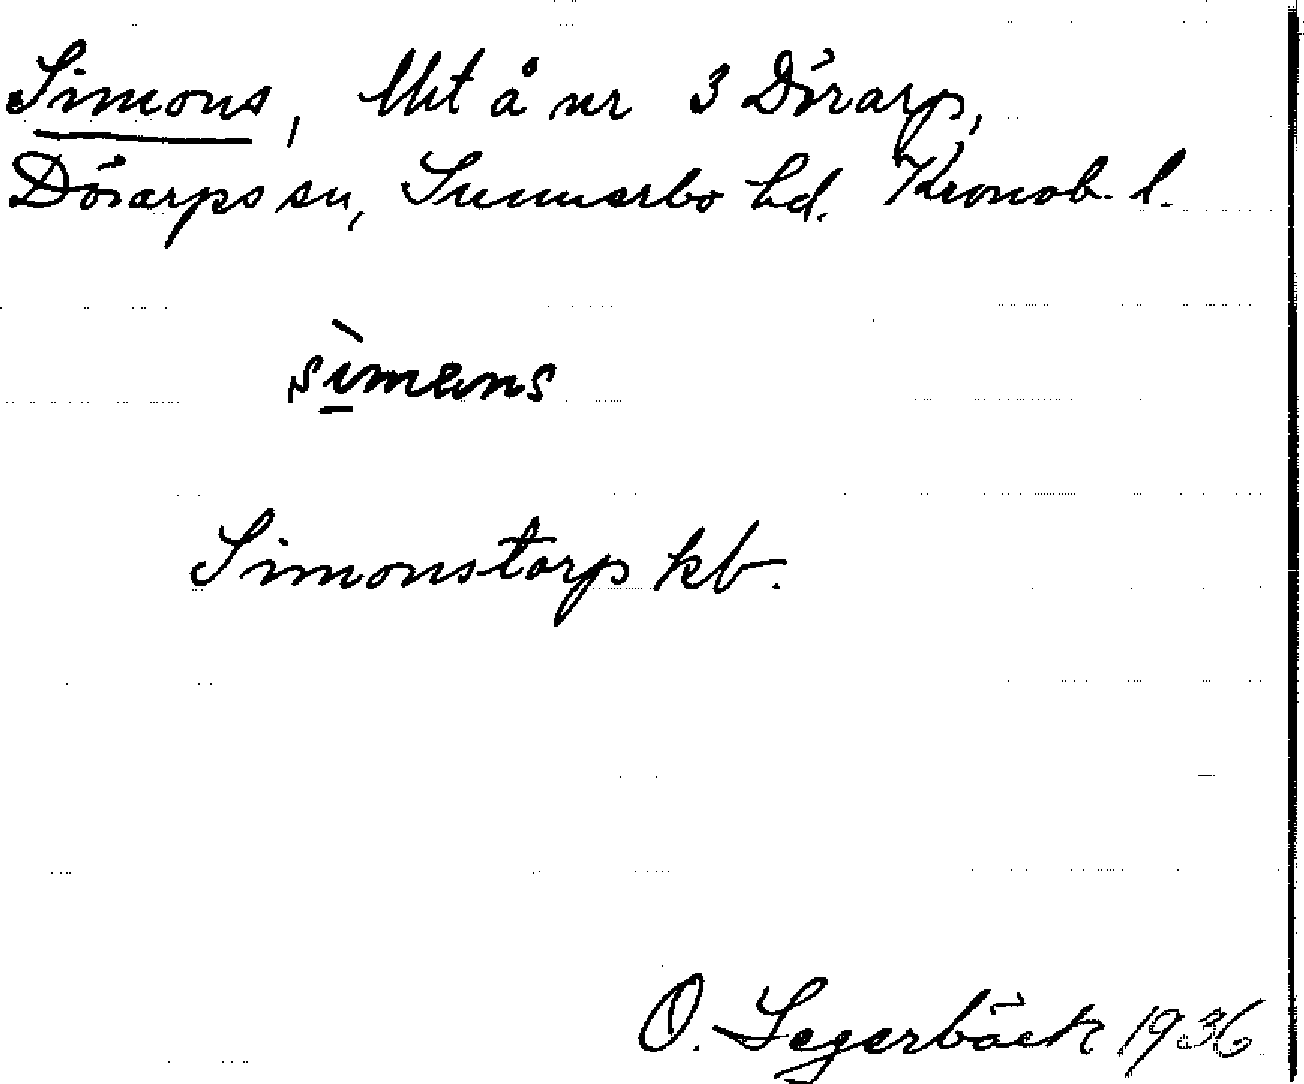 Simons, lht å nr 3 Dörarp,
Dörarps sn, Sunnerbo hd. Kronob. l.
sìmans
Simonstorp kb.
O. Segerbäck 1936